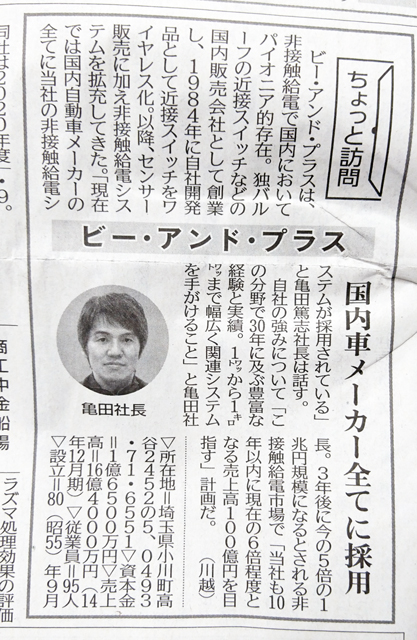 ちょっと訪問
ビー・アンド・プラスは、
非接触給電で国内において
パイオニア的存在。独バル
ーフの近接スイッチなどの
国内販売会社として創業
し、1984年に自社開発
品として近接スイッチをワ
イヤレス化。以降、センサー
販売に加え非接触給電シス
テムを拡充してきた。「現在
では国内自動車メーカーの
全てに当社の非接触給電シ
ビー・アンド・プラス
国内車メーカー全てに採用
ステムが採用されている」
と亀田篤志社長は話す。
自社の強みについて「こ
の分野で30年に及ぶ豊富な
経験と実績。1㍗から1㌔
㍗まで幅広く関連システム
を手がけること」と亀田社
亀田社長
長。3年後に今の5倍の1
兆円規模になるとされる非
接触給電市場で「当社も10
年以内に現在の6倍程度と
なる売上高100億円を目
指す」計画だ。（川越）
▽所在地＝埼玉県小川町高
谷2452の5、0493
・71・6551▽資本金
＝1億6500万円▽売上
高＝16億4000万円（14
年12月期）▽従業員＝95人
▽設立＝80（昭55）年9月
同社は2020年度
商工中金船場
ラズマ処理効果の評価